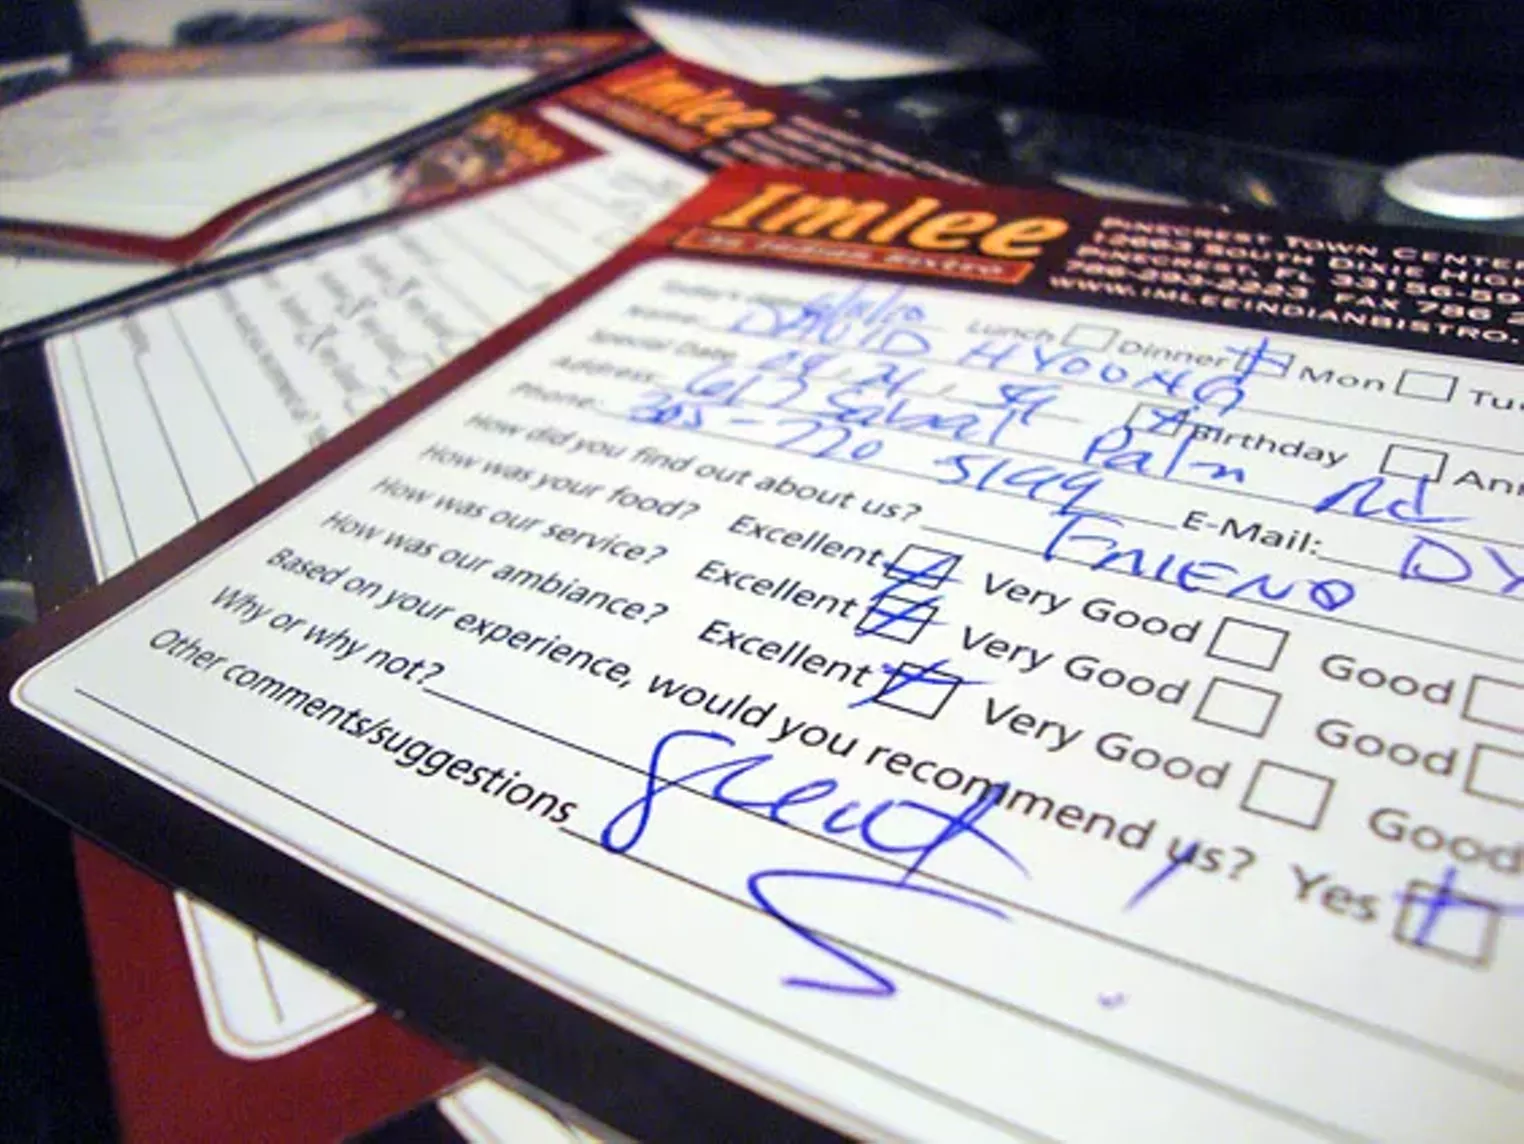 Imlee
Imlee
an Indian Bistro
PINECREST TOWN CENTER
12663 SOUTH DIXIE HIG
PINECREST, FL 33156-59
786-293-2223 FAX 786 2
WWW.IMLEEINDIANBISTRO.
Lunch Dinner Mon Tu
Name: DAVID HYOUNG
Special Date Birthday Ann
Address: 617 Sabal Palm Rd
Phone: 305-770 5199 E-Mail: DY
How did you find out about us? FRIEND
How was your food? Excellent Very Good Good
How was our service? Excellent Very Good Good
How was our ambiance? Excellent Very Good Good
Based on your experience, would you recommend us? Yes
Why or why not? Great
Other comments/suggestions